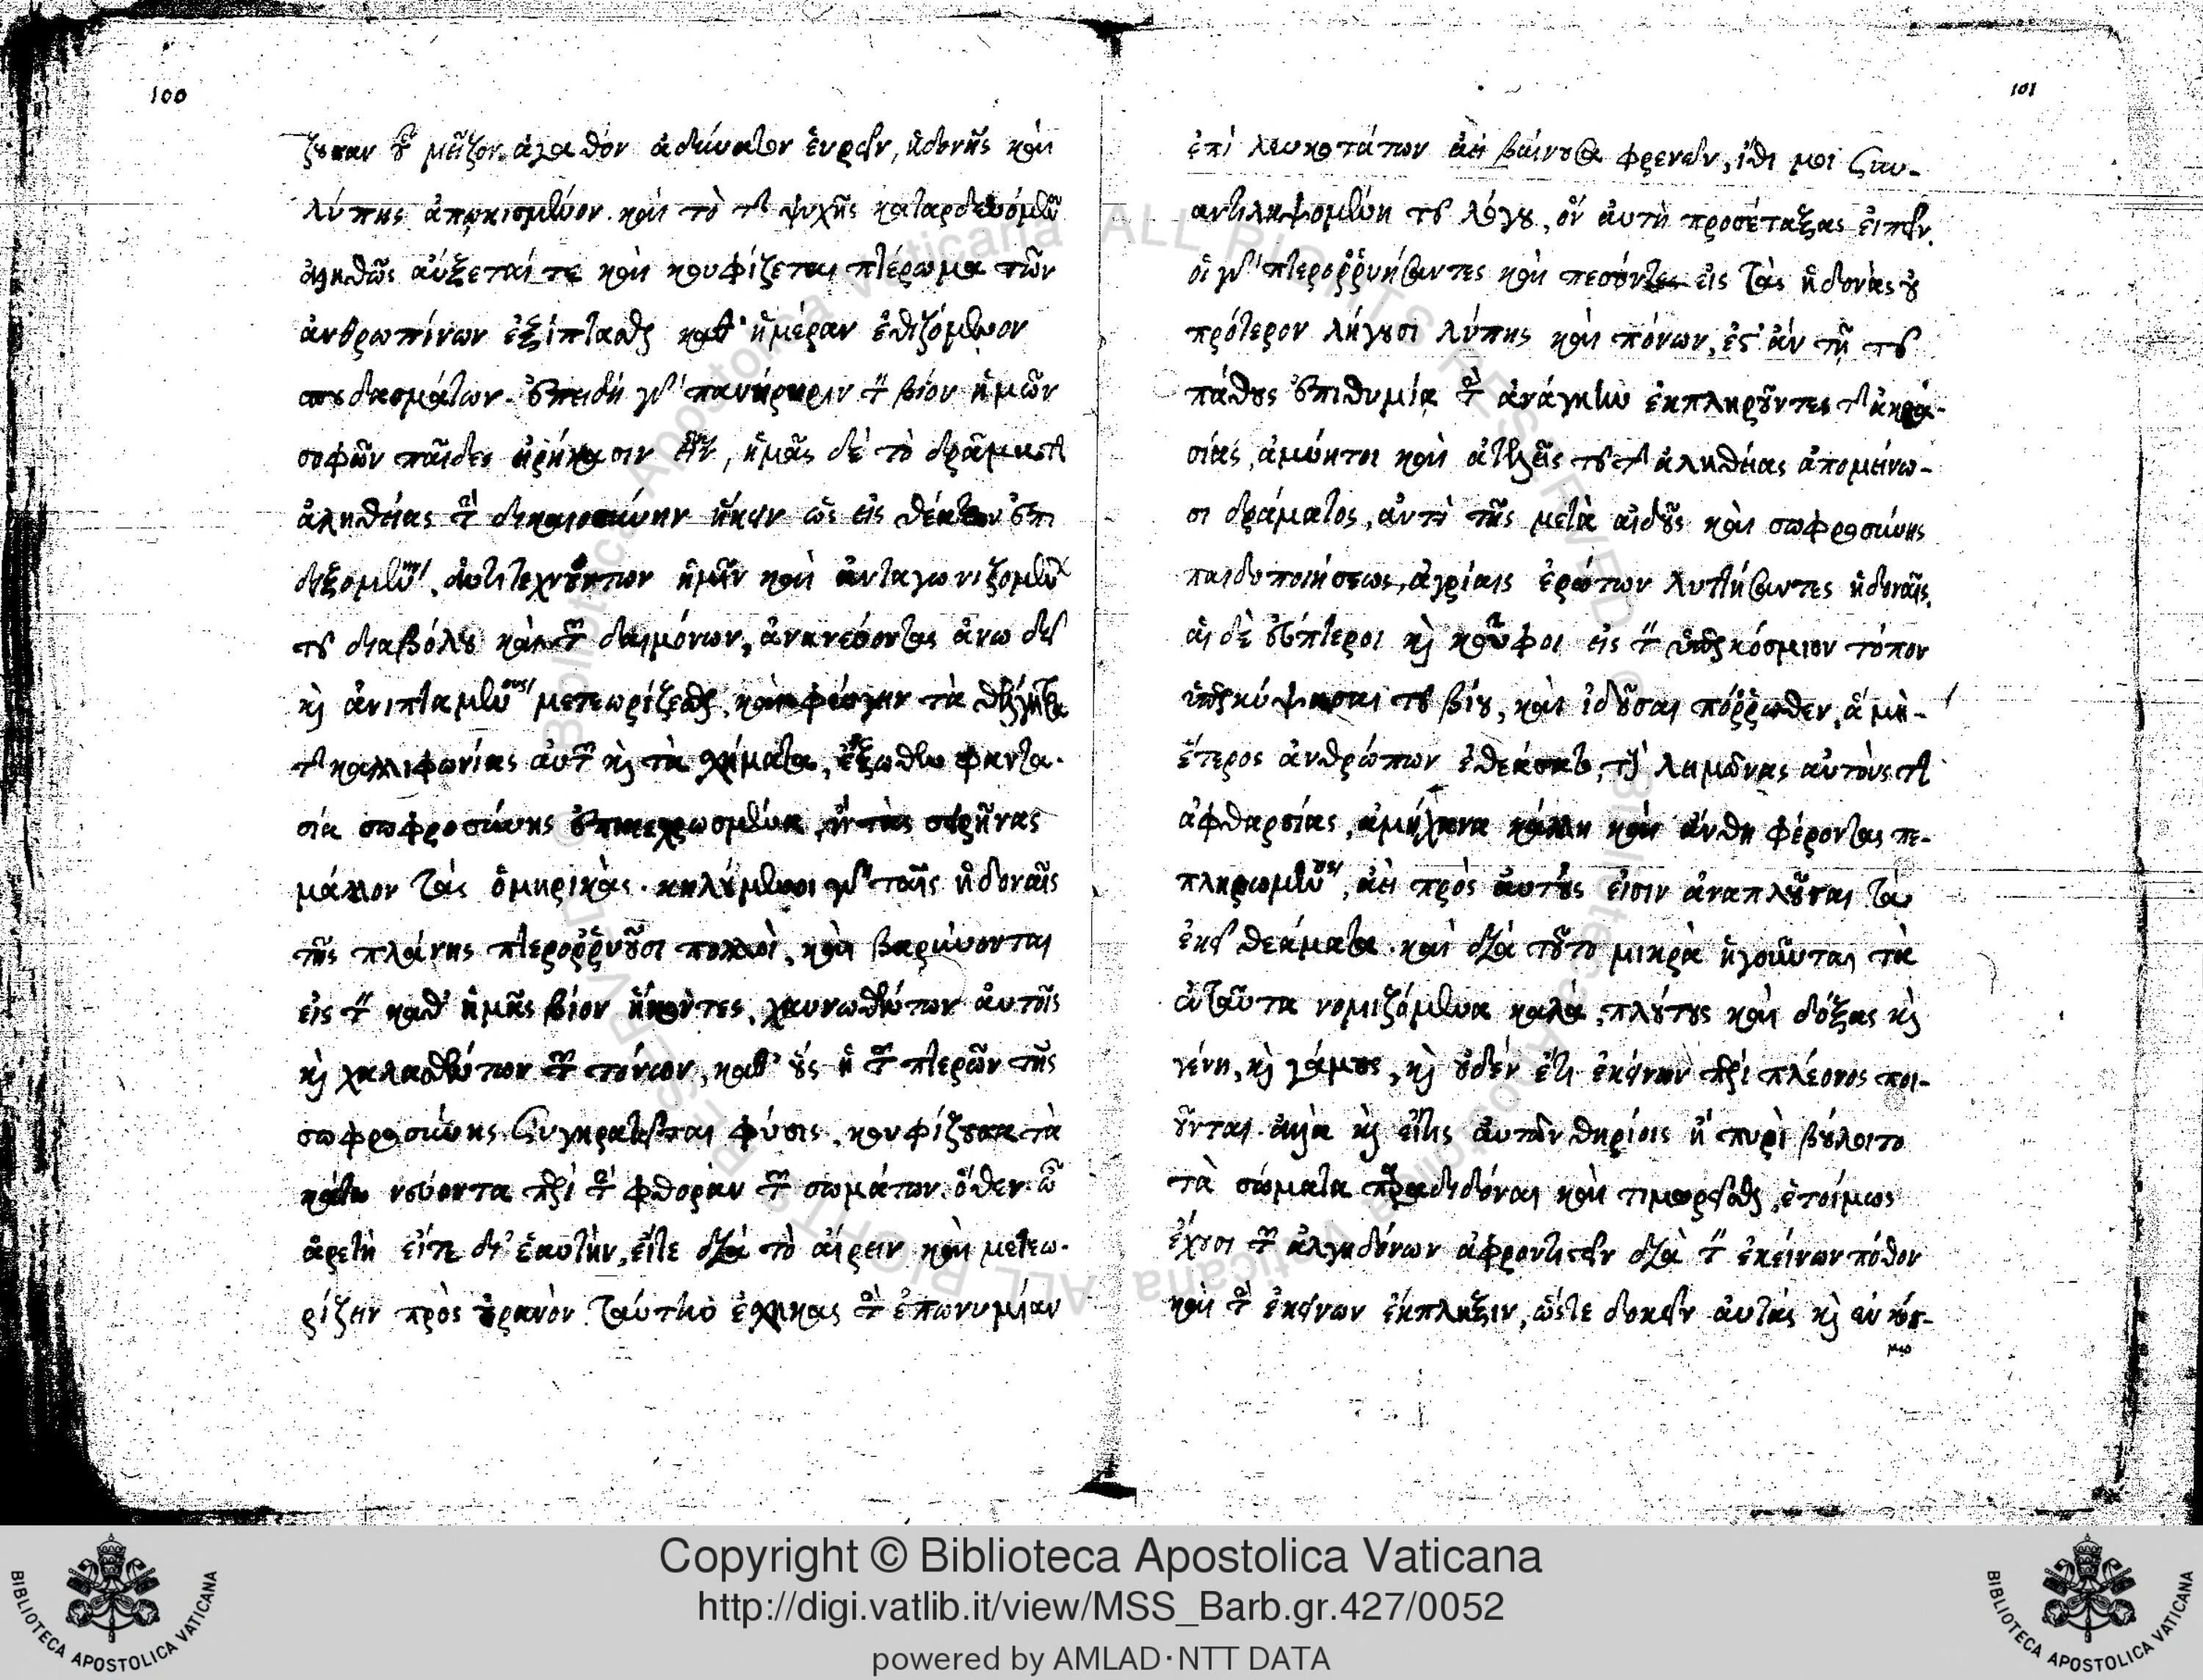 100
ζουσαν οὗ μεῖζον ἀγαθὸν ἀδύνατον εὑρεῖν, ἡδονῆς καὶ
λύπης ἀπῳκισμένον. καὶ τὸ τῆς ψυχῆς καταρδευόμενον
ἀληθῶς αὔξεταί τε καὶ κουφίζεται πτέρωμα τῶν
ἀνθρωπίνων ἐξίπτασθαι καθ' ἡμέραν ἐθιζόμενον
σπουδασμάτων. ἐπειδὴ γὰρ πανήγυριν τὸν βίον ἡμῶν
σοφῶν παῖδες εἰρήκασιν εἶναι, ἡμᾶς δὲ τὸ δρᾶμα τῆς
ἀληθείας τὴν δικαιοσύνην ἥκειν ὡς εἰς θέατρον ἐπι
δειξομένους, ἀντιτεχνούντων ἡμῖν καὶ ἀνταγωνιζομένων
τοῦ διαβόλου καὶ τῶν δαιμόνων, ἀνανεύοντας ἄνω δεῖ
καὶ ἀνιπταμένους μετεωρίζεσθαι, καὶ φεύγειν τὰ θέλγητρα
τῆς καλλιφωνίας αὐτῶν καὶ τὰ σχήματα, ἔξωθεν φαντα-
σίᾳ σωφροσύνης ἐπικεχρωσμένα, ἢ τὰς σειρῆνας
μᾶλλον τὰς ὁμηρικὰς. κηλούμενοι γὰρ ταῖς ἡδοναῖς
τῆς πλάνης πτεροῤῥυοῦσι πολλοὶ, καὶ βαρύνονται
εἰς τὸν καθ' ἡμᾶς βίον ἥκοντες, χαυνωθέντων αὐτοῖς
καὶ χαλασθέντων τῶν τόνων, καθ' οὓς ἡ τῶν πτερῶν τῆς
σωφροσύνης συγκρατεῖται φύσις, κουφίζουσα τὰ
κάτω νεύοντα περὶ τὴν φθορὰν τῶν σωμάτων. ὅθεν ὦ
ἀρετὴ εἴτε δι' ἑαυτὴν, εἴτε διὰ τὸ αἴρειν καὶ μετεω-
ρίζειν πρὸς οὐρανὸν ταύτην ἔσχηκας τὴν ἐπωνυμίαν
101
ἐπὶ λευκοτάτων ἀεὶ βαίνουσα φρενῶν, ἴθι μοι συν-
αντιληψομένη τοῦ λόγου, ὃν αὐτὴ προσέταξας εἰπεῖν.
οἱ γὰρ πτεροῤῥυήσαντες καὶ πεσόντες εἰς τὰς ἡδονὰς οὐ
πρότερον λήγουσι λύπης καὶ πόνων, ἔστ' ἂν τῇ τοῦ
πάθους ἐπιθυμίᾳ τὴν ἀνάγκην ἐκπληροῦντες τῆς ἀκρα-
σίας, ἀμύητοι καὶ ἀτελεῖς τοῦ τῆς ἀληθείας ἀπομείνω-
σι δράματος, ἀντὶ τῆς μετὰ αἰδοῦς καὶ σωφροσύνης
παιδοποιήσεως, ἀγρίαις ἐρώτων λυττήσαντες ἡδοναῖς.
αἱ δὲ εὔπτεροι καὶ κοῦφοι εἰς τὸν ὑπερκόσμιον τόπον
ὑπερκύψασαι τοῦ βίου, καὶ ἰδοῦσαι πόῤῥωθεν, ἃ μὴ-
ἕτερος ἀνθρώπων ἐθεάσατο, τοὺς λειμῶνας αὐτοὺς τῆς
ἀφθαρσίας, ἀμήχανα κάλλη καὶ ἄνθη φέροντας πε-
πληρωμένους, ἀεὶ πρὸς αὐτούς εἰσιν ἀναπλοῦσαι τὰ
ἐκεῖ θεάματα. καὶ διὰ τοῦτο μικρὰ ἡγοῦνται τὰ
ἐνταῦτα νομιζόμενα καλὰ, πλούτους καὶ δόξας καὶ
γένη, καὶ γάμους, καὶ οὐδὲν ἔτι ἐκείνων περὶ πλέονος ποι-
οῦνται. ἀλλὰ καὶ εἴτις αὐτῶν θηρίοις ἢ πυρὶ βούλοιτο
τὰ σώματα παραδιδόναι καὶ τιμωρεῖσθαι, ἑτοίμως
ἔχουσι τῶν ἀλγηδόνων ἀφροντιστεῖν διὰ τὸν ἐκείνων πόθον
καὶ τὴν ἐκείνων ἔκπληξιν, ὥστε δοκεῖν αὐτὰς καὶ ἐν κόσ-
μῳ
Copyright © Biblioteca Apostolica Vaticana
http://digi.vatlib.it/view/MSS_Barb.gr.427/0052
powered by AMLAD·NTT DATA
BIBLIOTECA APOSTOLICA VATICANA
BIBLIOTECA APOSTOLICA VATICANA